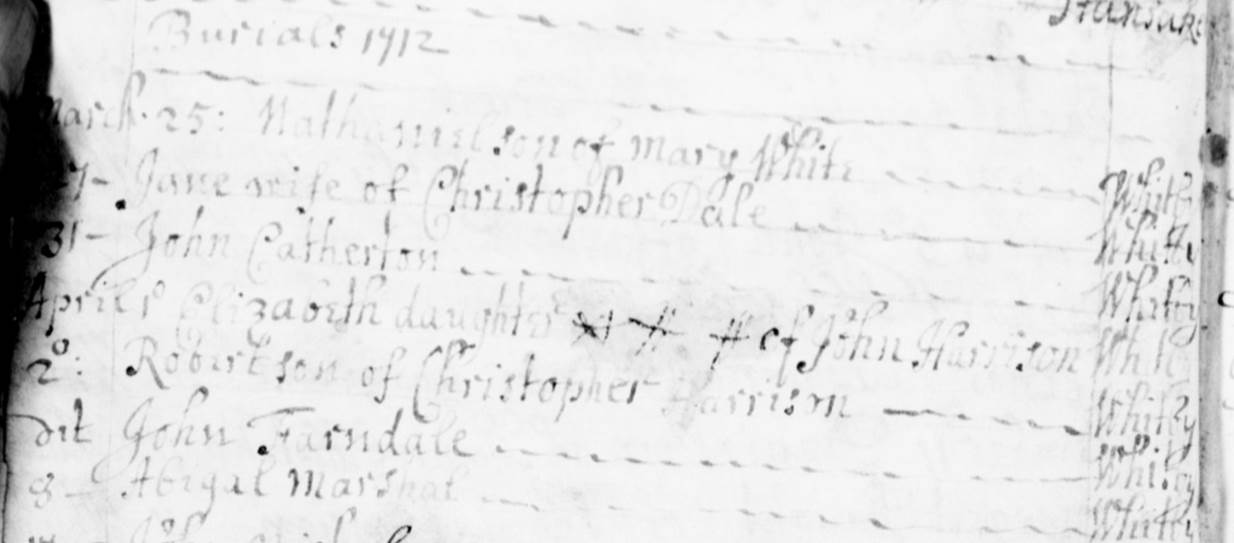 Burials 1712
March 25: Nathaniel son of Mary White Whitby
7 - Jane wife of Christopher Dale Whitby
31 - John Catherton Whitby
April Elizabeth daughter of John Harrison Whitby
2º: Robert son of Christopher Harrison Whitby
dit John Farndale Whitby
8 - Abigal Marshal Whitby